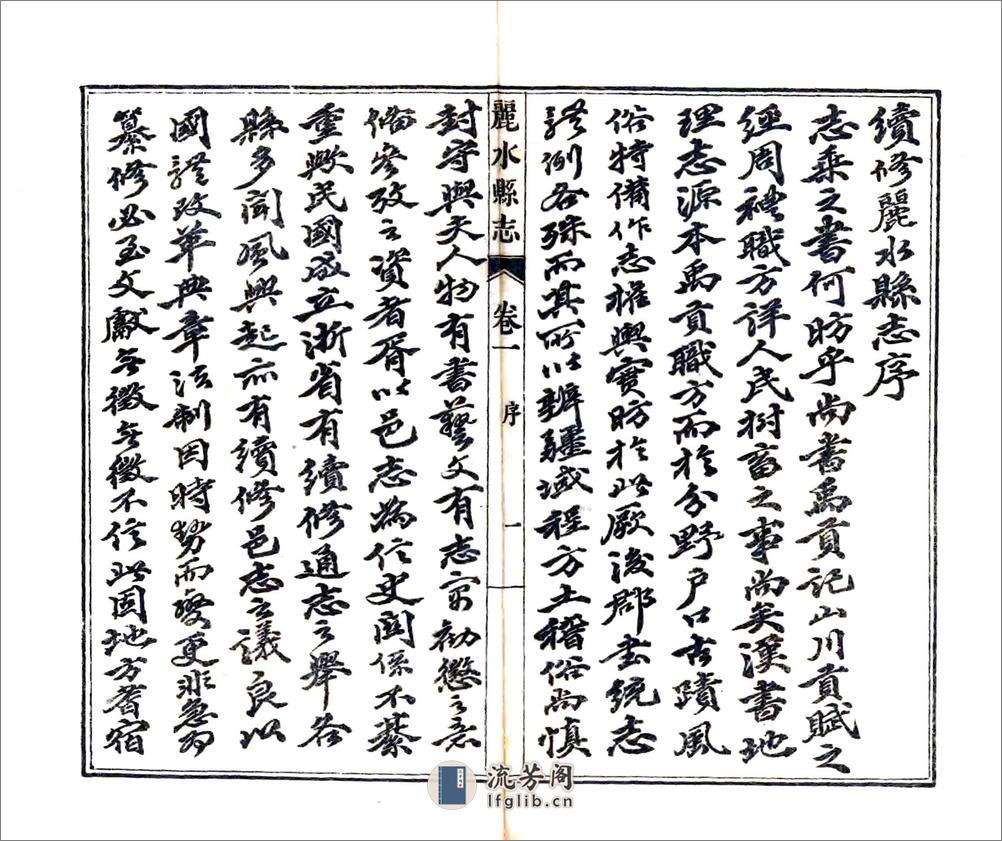 續修麗水縣志序
志乘之書何昉乎尚書禹貢記山川貢賦之
經周禮職方詳人民樹畜之事尚矣漢書地
理志源本禹貢職方而於分野户口古蹟風
俗特備作志權輿實昉於此厥後郡書統志
體例各殊而其所以辨疆域程方土稽俗尚慎
麗水縣志
卷一
序
一
封守與夫人物有書藝文有志寓勸懲之意
備參攷之資者胥以邑志為信史關係不綦
重歟民國成立浙省有續修通志之舉各
縣多聞風興起亦有續修邑志之議良以
國體改革典章法制因時勢而變更非急為
纂修必至文獻無徵無徵不信此固地方耆宿
流芳阁
lfglib.cn